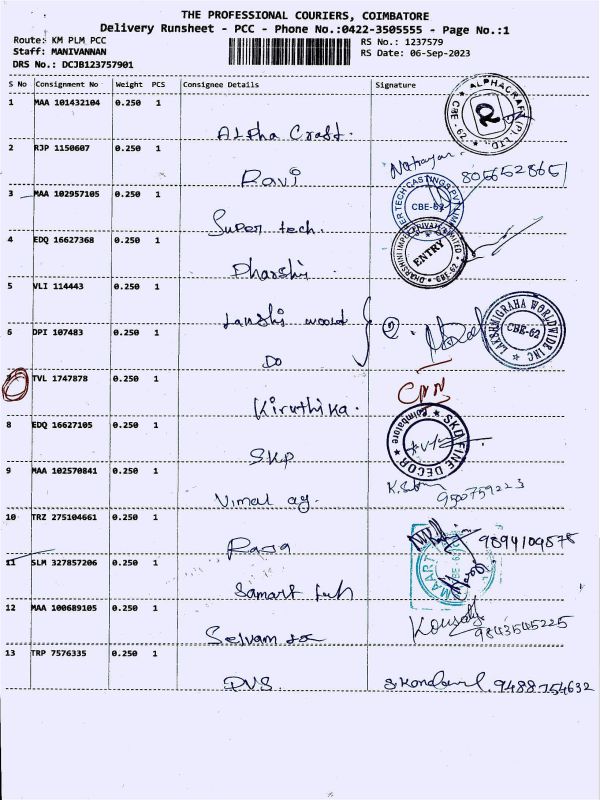 THE PROFESSIONAL COURIERS, COIMBATORE
Delivery Runsheet - PCC - Phone No.:0422-3505555 - Page No.:1
Route: KM PLM PCC
Staff: MANIVANNAN
DRS No.: DCJB123757901
RS No.: 1237579
RS Date: 06-Sep-2023
S No Consignment No Weight PCS Consignee Details Signature
1 MAA 101432104 0.250 1
Alpha Craft.
ALPHACRAFT (P) LTD. CBE-62
2 RJP 1150607 0.250 1
Ravi
3 MAA 102957105 0.250 1
Super tech.
TECH CASTINGS PVT CBE-62
4 EDQ 16627368 0.250 1
Dharshi
ENTRY
5 VLI 114443 0.250 1
Lakshi world
6 DPI 107483 0.250 1
Do
②.
LAKSHMIGRAHA WORLDWIDE INC CBE-62
7 TVL 1747878 0.250 1
Kiruthika.
8 EDQ 16627105 0.250 1
SKP
SKD FINE DECOR Coimbatore
9 MAA 102570841 0.250 1
Vimal ag.
9500759223
10 TRZ 275104661 0.250 1
Raja
9894109878
11 SLM 327857206 0.250 1
Samart tech
12 MAA 100689105 0.250 1
Selvam
9843545225
13 TRP 7576335 0.250 1
DVS.
9488754632